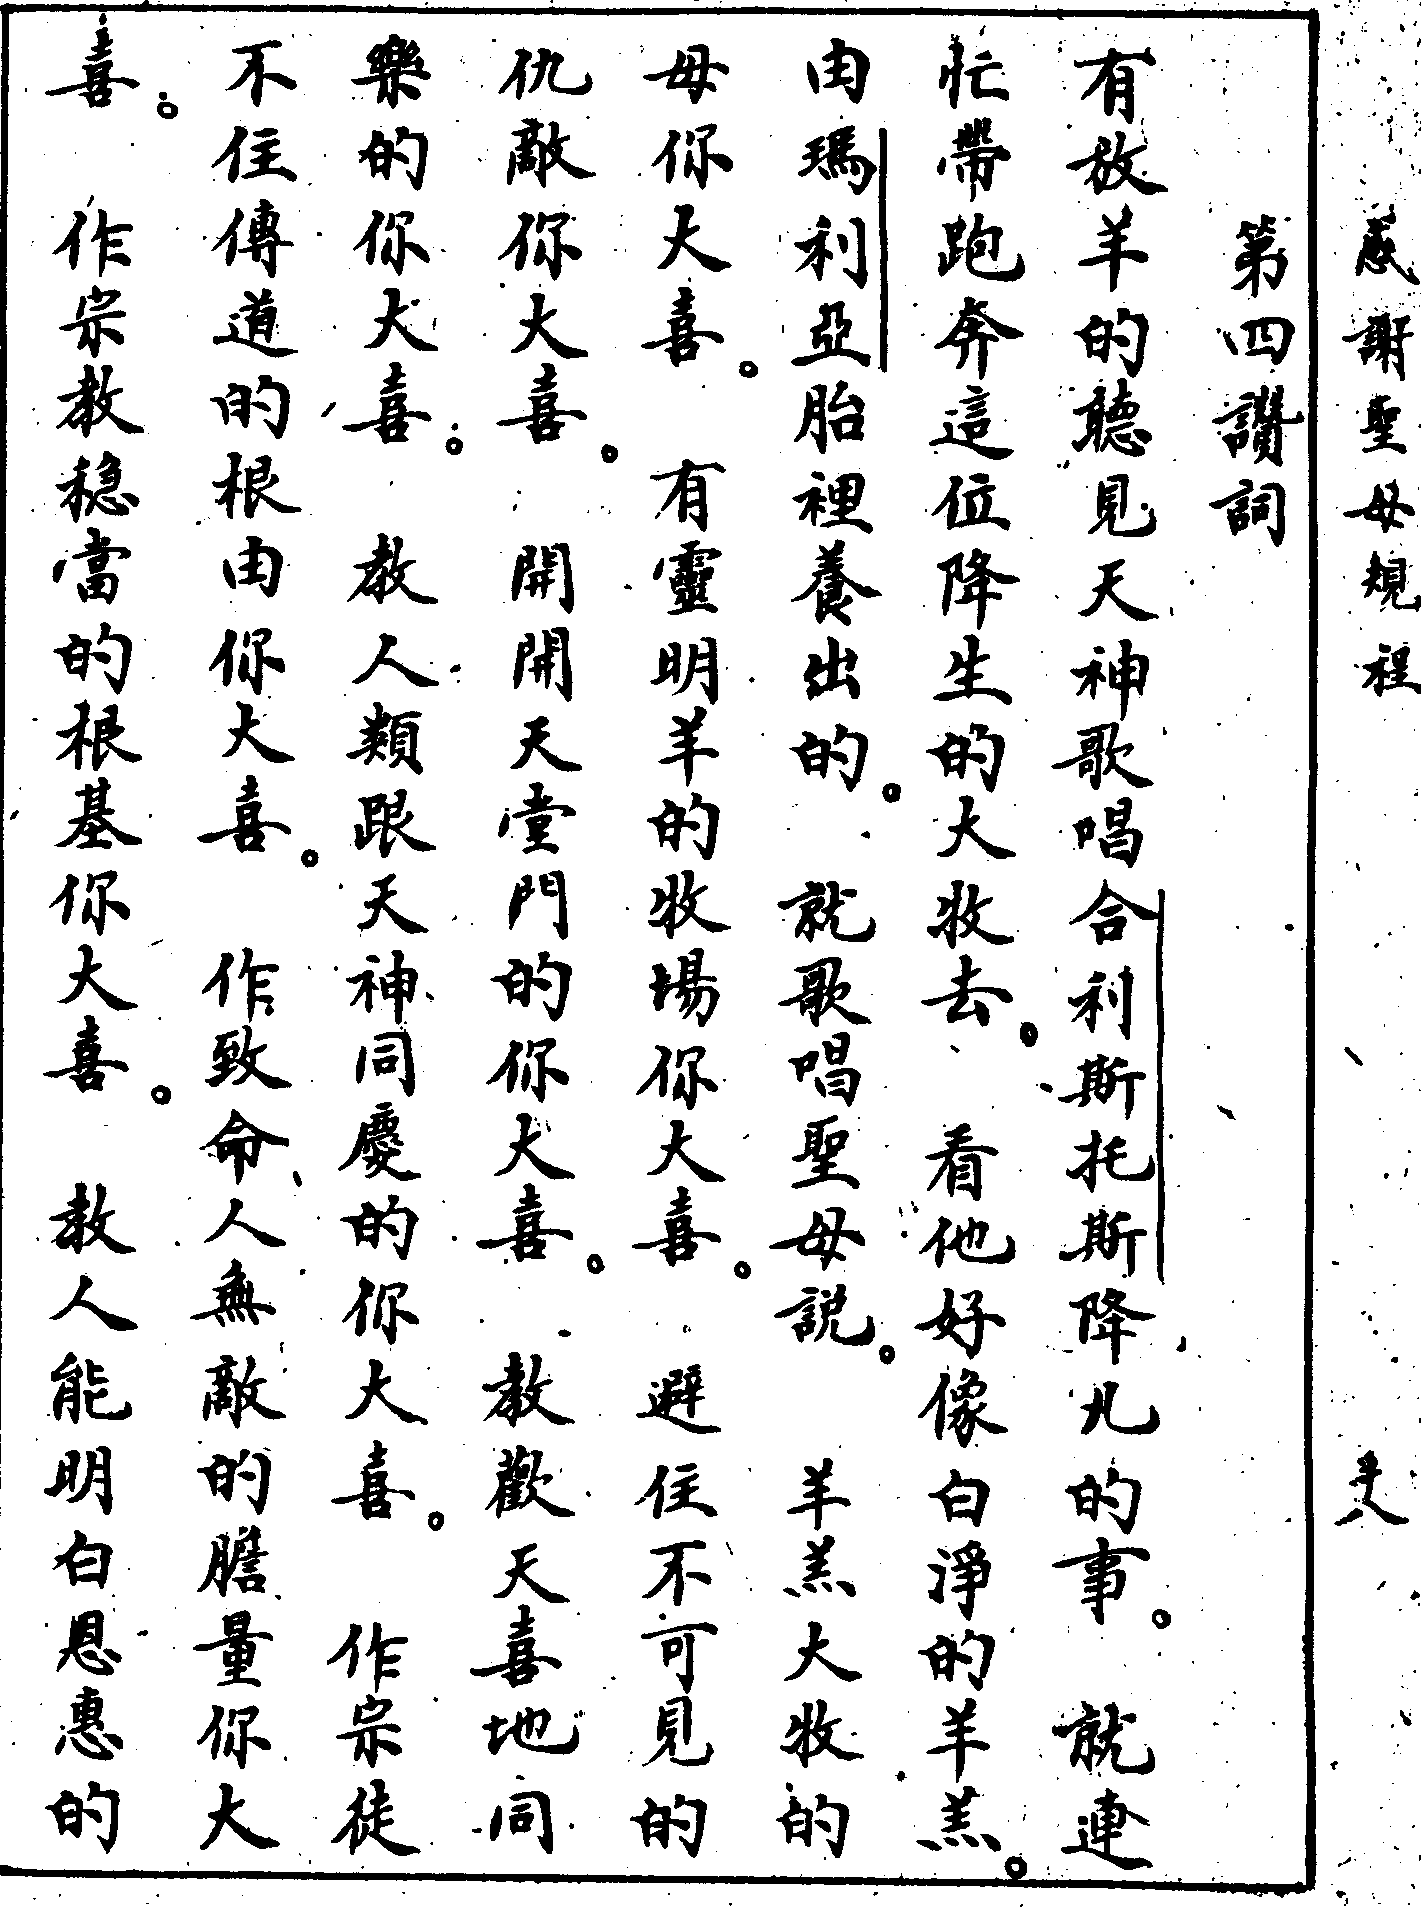 感謝聖母規程
第四讚詞
有放羊的聽見天神歌唱合利斯托斯降凣的事。 就連
忙帶跑奔這位降生的大牧去。 看他好像白淨的羊羔。
由瑪利亞胎裡養出的。 就歌唱聖母說。 羊羔大牧的
母你大喜。 有靈明羊的牧場你大喜。 避住不可見的
仇敵你大喜。 開開天堂門的你大喜。 教歡天喜地同
樂的你大喜。 教人類跟天神同慶的你大喜。 作宗徒
不住傳道的根由你大喜。 作致命人無敵的膽量你大
喜。 作宗教穩當的根基你大喜。 教人能明白恩惠的